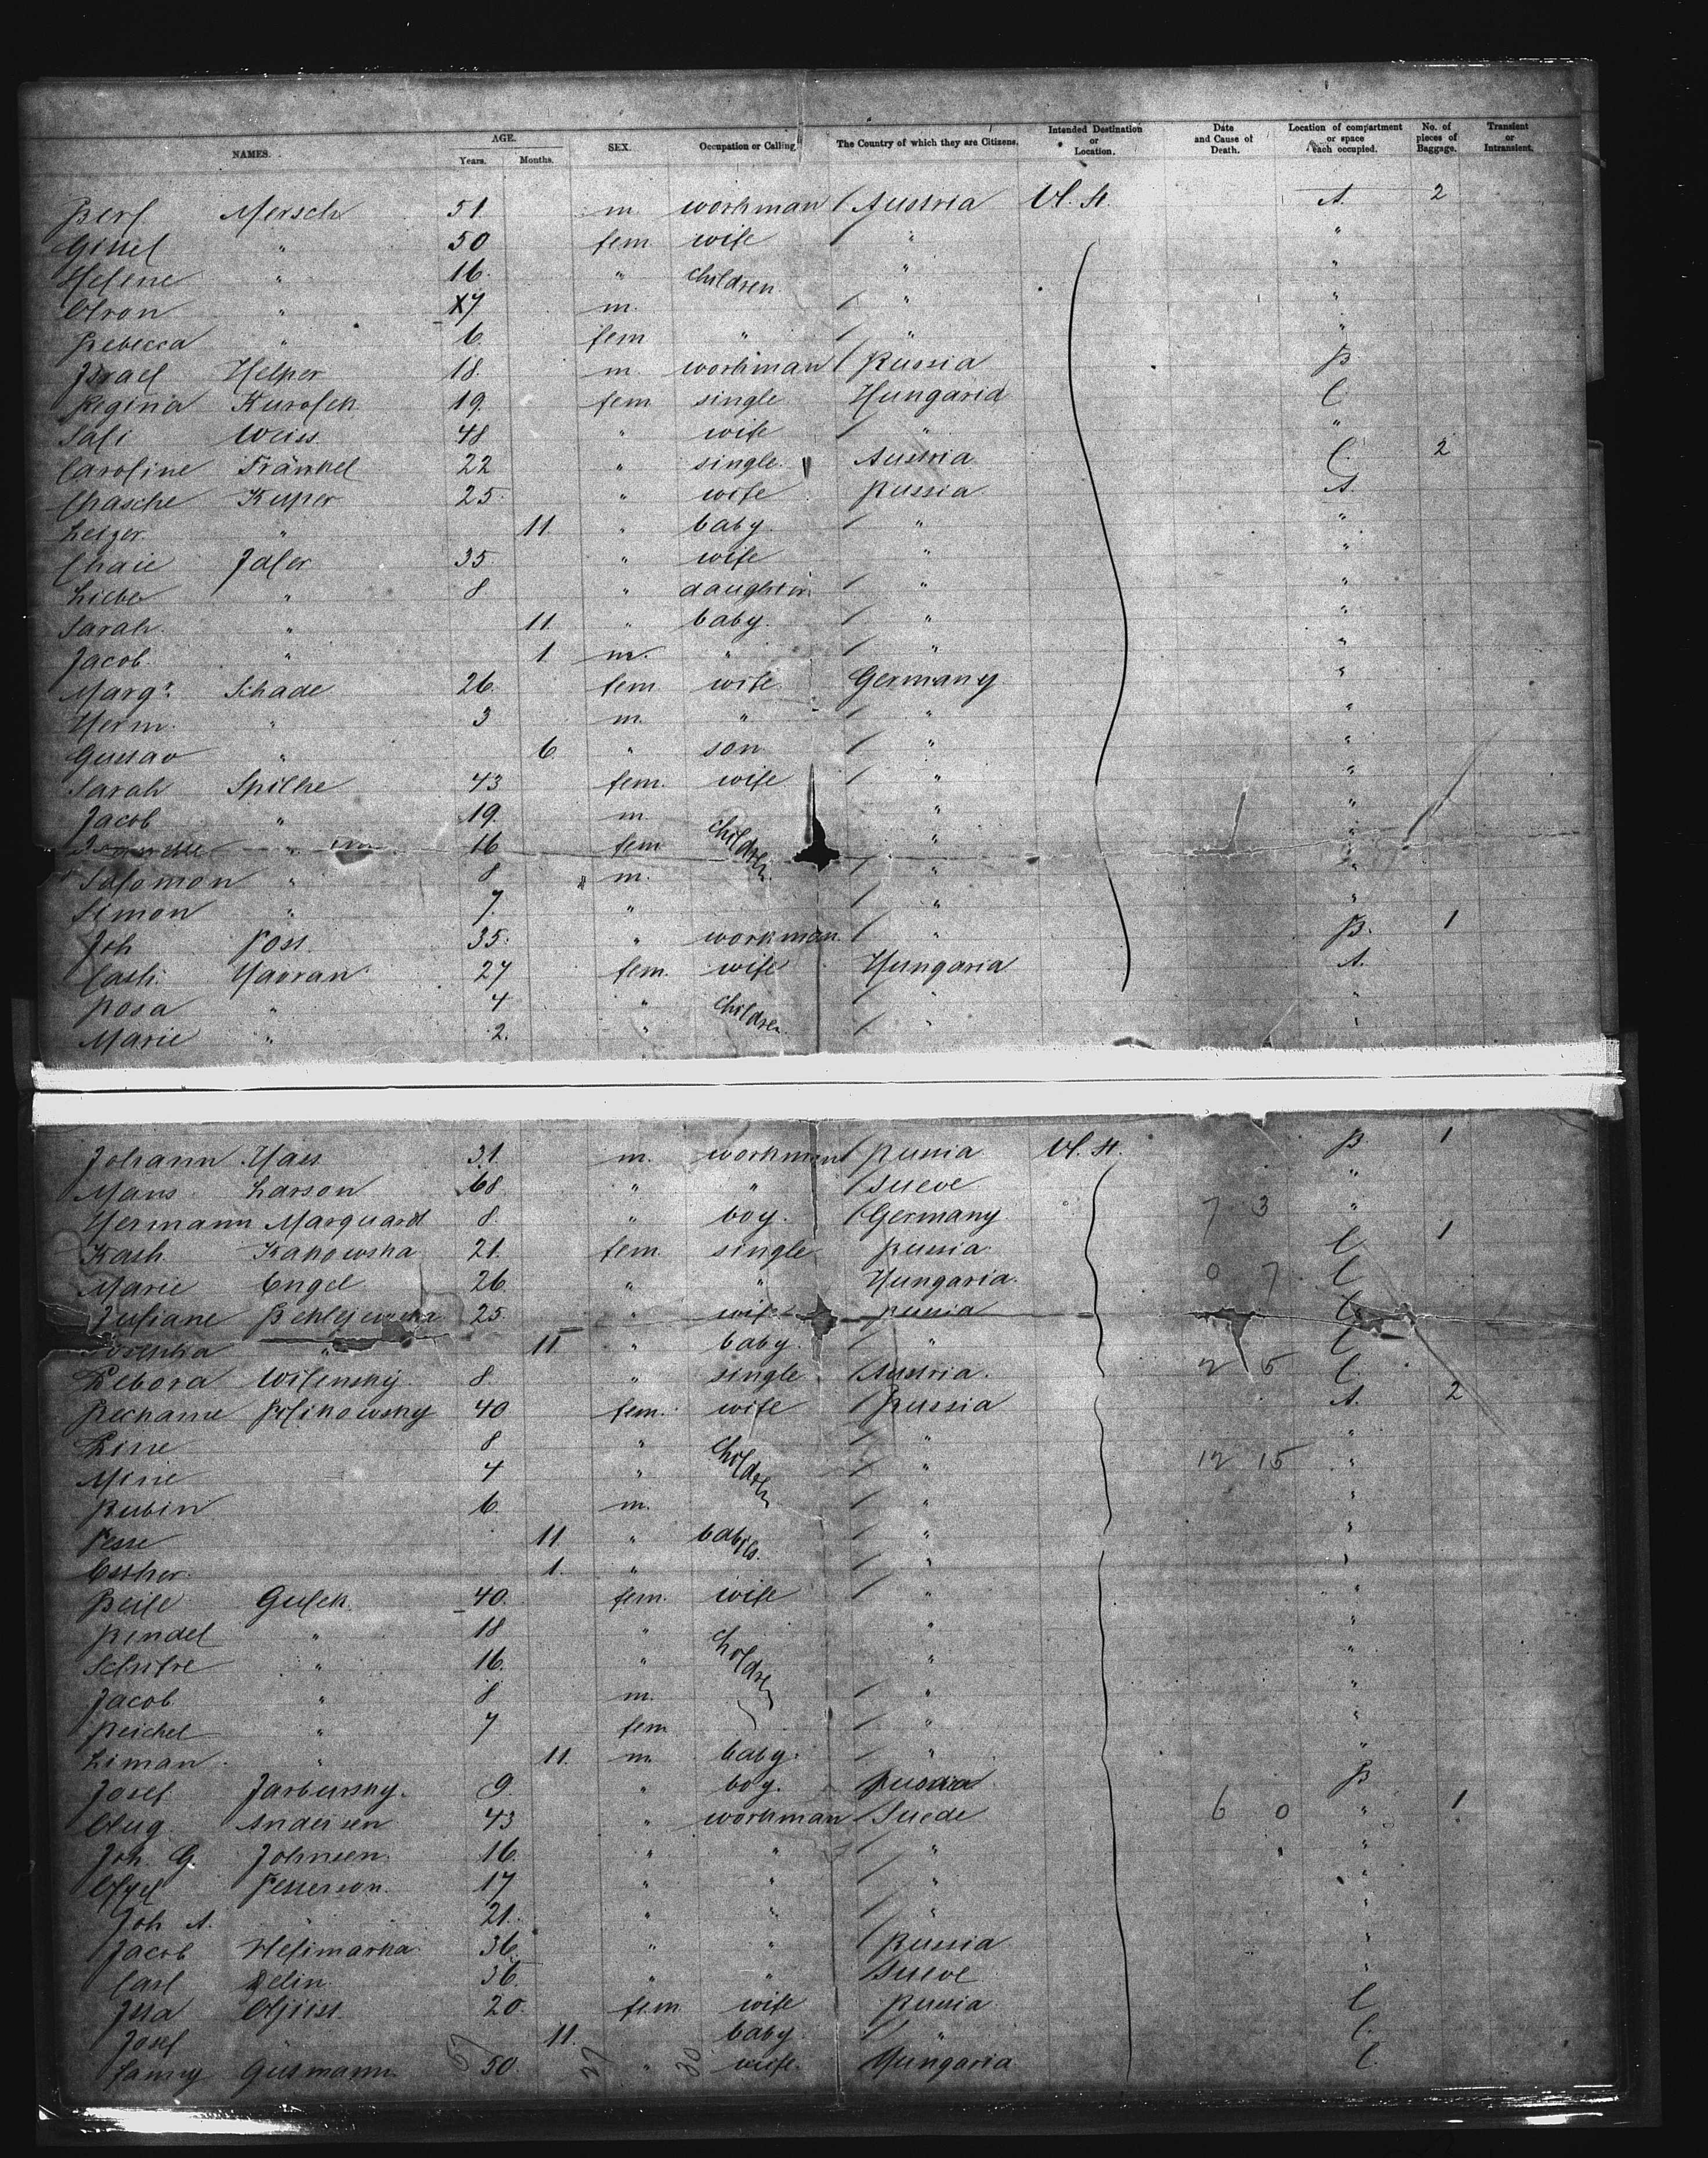 NAMES. AGE. Years. Months. SEX. Occupation or Calling. The Country of which they are Citizens. Intended Destination or Location. Date and Cause of Death. Location of compartment or space each occupied. No. of pieces of Baggage. Transient or Intransient.
Berl Mersch 51 m. workman / Austria U. St. A. 2
Gissel " 50 fem wife / " "
Helene " 16. " children " "
" m. / " "
Rebecca " 6. fem " / " "
Israel Helper 18. m. workman / Russia B.
Regina 19. fem single Hungaria C.
Sali Weiss 48 " wife / " "
Caroline Fränkel 22 " single. Austria C. 2
Chasche Kuper 25. " wife Russia A.
Leizer " 11. " baby / " "
Chaie Idler 35. " wife " "
Liebe " 8 " daughter / " "
Sarah " 11. " baby / " "
Jacob " 1 m. " / " "
Marg. Schade 26. fem wife Germany "
Herm. " 3 m. " / " "
Gustav " 6. " son / " "
Sarah Spilke 43 fem. wife / " "
Jacob " 19. m. children " "
" 16 fem " "
Salomon " 8 m. / " "
Simon " 7. " / " "
Joh Post 35. " workman / " B. 1
Cath. Havran 27 fem. wife Hungaria A.
Rosa " 4 " children / " "
Marie " 2. " / "
Johann Hass 31. m. workman / Russia U. St. B. 1
Mans Larson 68 " " / Sueve "
Hermann Marquard 8. " boy. / Germany 7 3 "
Kath. Kakowska 21. fem. single Russia C. 1
Marie Engel 26. " " Hungaria. 0 7 C.
Juliane 25. " wife Russia C.
" 11 " baby. / " C.
Debora Wilensky 8. " single Austria. 12 5 C.
40 fem. wife / Russia A. 2
Line 8 " children / " "
Mine 4 " / " 12 15 "
Rubin 6. m. / " "
Pesse 11. " babies. / " "
Esther. 1. " / " "
Beile Gulek 40. fem. wife / " "
Rendel " 18 " children " "
" 16. " " "
Jacob " 8 m. / " "
Reichel " 7 fem / " "
Liman " 11. m. baby. / " "
Josef Jarbursky. 9. " boy. Russia B.
Aug. Andersen 43 " workman / Suede 6 0 " 1
Joh. G. Johnsen. 16. " " / " "
Axel Petterson. 17 " " / " "
Joh A. 21. " " / " "
Jacob 36. " " / Russia "
Carl Delin 36. " " / Sueve "
20. fem wife Russia C.
Josef 11. baby / " C.
Fanny Gusmann. 50. " wife. Hungaria C.